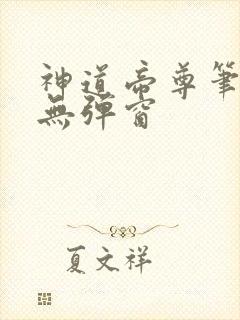 神道帝尊筆
無彈窗
夏文祥